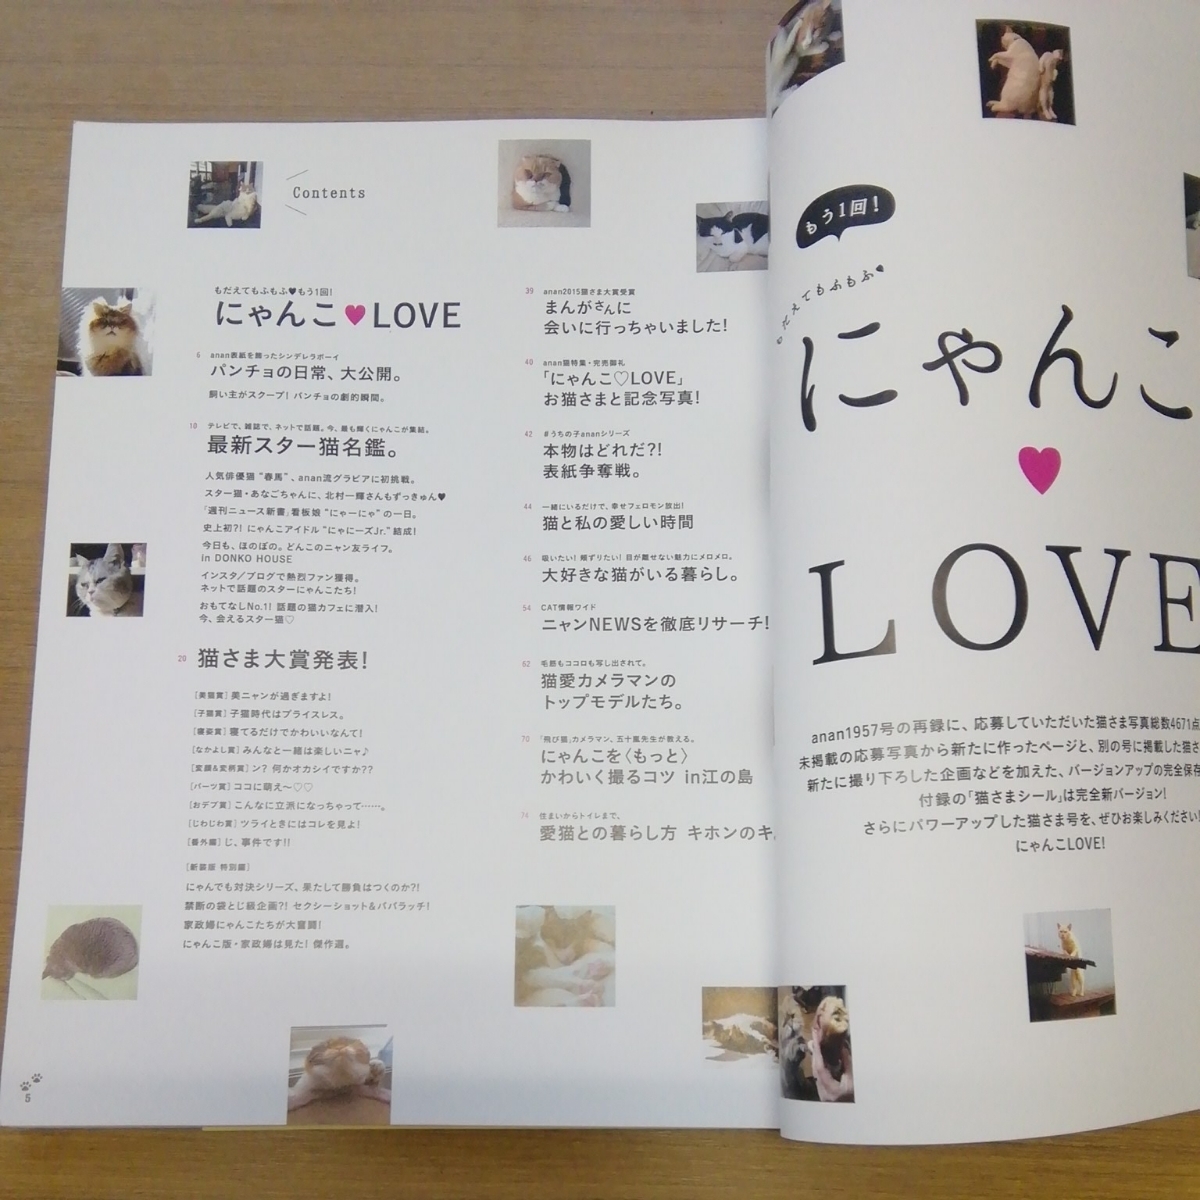 Contents
もだえてもふもふ♥もう1回!
にゃんこ♥LOVE
6 anan表紙を飾ったシンデレラボーイ
パンチョの日常、大公開。
飼い主がスクープ! パンチョの劇的瞬間。
10 テレビで、雑誌で、ネットで話題。今、最も輝くにゃんこが集結。
最新スター猫名鑑。
人気俳優猫“春馬”、anan流グラビアに初挑戦。
スター猫・あなごちゃんに、北村一輝さんもずっきゅん♥
「週刊ニュース新書」看板娘“にゃーにゃ”の一日。
史上初?! にゃんこアイドル“にゃにーズJr.”結成!
今日も、ほのぼの。どんこのニャン友ライフ。
in DONKO HOUSE
インスタ/ブログで熱烈ファン獲得。
ネットで話題のスターにゃんこたち!
おもてなしNo.1! 話題の猫カフェに潜入!
今、会えるスター猫♡
20 猫さま大賞発表!
[美猫賞] 美ニャンが過ぎますよ!
[子猫賞] 子猫時代はプライスレス。
[寝姿賞] 寝てるだけでかわいいなんて!
[なかよし賞] みんなと一緒は楽しいニャ♪
[変顔&変柄賞] ン? 何かオカシイですか??
[パーツ賞] ココに萌え〜♡♡
[おデブ賞] こんなに立派になっちゃって……。
[じわじわ賞] ツライときにはコレを見よ!
[番外編] じ、事件です!!
[新装版 特別編]
にゃんでも対決シリーズ、果たして勝負はつくのか?!
禁断の袋とじ級企画?! セクシーショット&パパラッチ!
家政婦にゃんこたちが大奮闘!
にゃんこ版・家政婦は見た! 傑作選。
5
39 anan2015猫さま大賞受賞
まんがさんに
会いに行っちゃいました!
40 anan猫特集・完売御礼
「にゃんこ♡LOVE」
お猫さまと記念写真!
42 #うちの子ananシリーズ
本物はどれだ?!
表紙争奪戦。
44 一緒にいるだけで、幸せフェロモン放出!
猫と私の愛しい時間
46 吸いたい! 頬ずりたい! 目が離せない魅力にメロメロ。
大好きな猫がいる暮らし。
54 CAT情報ワイド
ニャンNEWSを徹底リサーチ!
62 毛筋もココロも写し出されて。
猫愛カメラマンの
トップモデルたち。
70 「飛び猫」カメラマン、五十嵐先生が教える。
にゃんこを〈もっと〉
かわいく撮るコツ in江の島
74 住まいからトイレまで、
愛猫との暮らし方 キホンのキ
もう1回!
もだえてもふもふ♥
にゃんこ
♥
LOVE
anan1957号の再録に、応募していただいた猫さま写真総数4671点
未掲載の応募写真から新たに作ったページと、別の号に掲載した猫さ
新たに撮り下ろした企画などを加えた、バージョンアップの完全保存
付録の「猫さまシール」は完全新バージョン!
さらにパワーアップした猫さま号を、ぜひお楽しみください!
にゃんこLOVE!